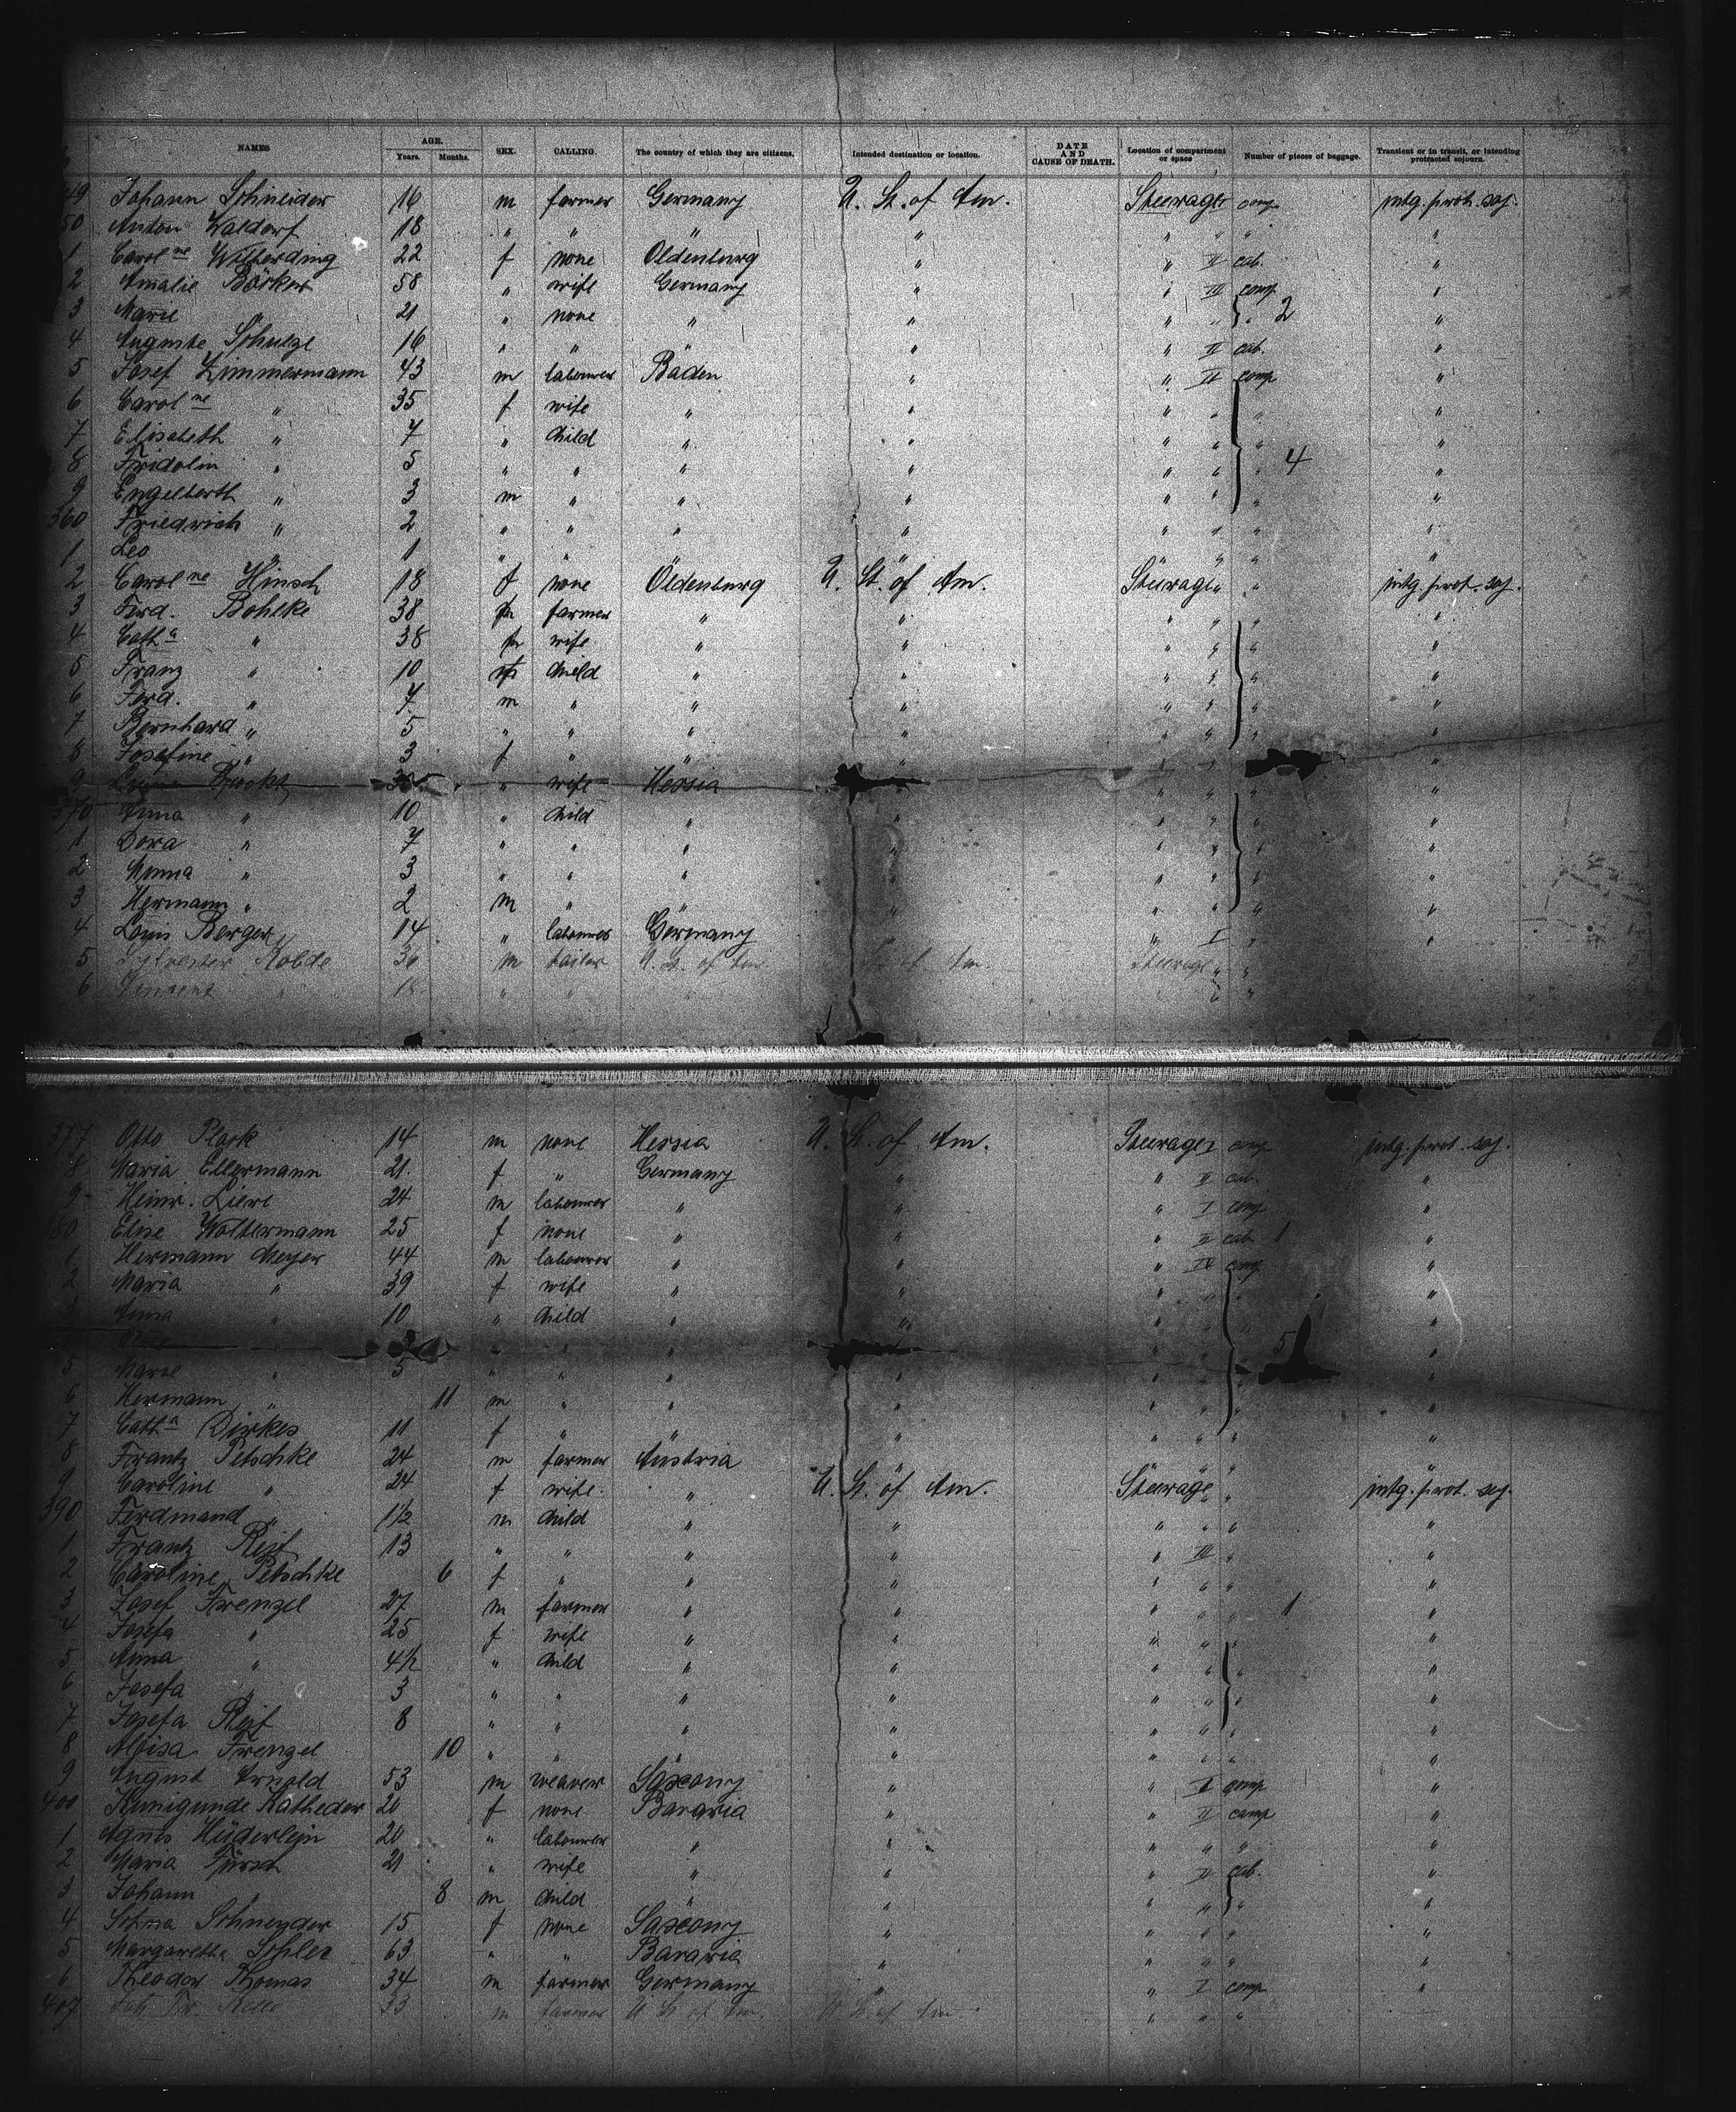 NAMES AGE. Years. Months. SEX. CALLING. The country of which they are citizens. Intended destination or location. DATE AND CAUSE OF DEATH. Location of compartment or space Number of pieces of baggage. Transient or in transit, or intending protracted sojourn.
49 Johann Schneider 16 m farmer Germany U. St. of Am. Steerage I comp intg. prot. soj.
50 Anton Waldorf 18 " " " " " " " "
1 Carolne Wilberding 22 f none Oldenburg " " II cab. "
2 Amalie Börker 58 " wife Germany " " III comp "
3 Marie " 21 " none " " " " " 2 "
4 Auguste Schulze 16 " " " " " II cab. "
5 Josef Zimmermann 43 m labourer Baden " " II comp "
6 Carolne " 35 f wife " " " " " "
7 Elisabeth " 7 " child " " " " " "
8 Fridolin " 5 " " " " " " " 4 "
9 Engelberth " 3 m " " " " " " "
360 Friedrich " 2 " " " " " " " "
1 Leo " 1 " " " " " " " "
2 Carolne Hinsch 18 f none Oldenburg U. St. of Am. Steerage " " intg. prot. soj.
3 Ferd. Bohlke 38 m farmer " " " " " "
4 Catha " 38 f wife " " " " " "
5 Franz " 10 m child " " " " " "
6 Ferd. " 7 m " " " " " " "
7 Bernhard " 5 " " " " " " " "
8 Josefine " 3 f " " " " " " "
9 " wife Hessia " " " " "
370 Anna " 10 " child " " " " " "
1 Dora " 7 " " " " " " " "
2 Minna " 3 " " " " " " " "
3 Hermann " 2 m " " " " " " "
4 Louis Berger 14 " labourer Germany " " I " "
5 Sylvester Kobde 30 m tailor U. St. of Am. U. St. of Am. Steerage " "
6 Vincent " 18 " " " " "
377 Otto Plack 14 m none Hessia U. St. of Am. Steerage I comp intg. prot. soj.
8 Maria Ellermann 21 f " Germany " " II cab. "
9 Heinr. Liere 24 m labourer " " " I comp "
380 Elise Woltermann 25 f none " " " II cab 1 "
1 Hermann Meyer 44 m labourer " " " IV comp "
2 Maria " 39 f wife " " " " " "
3 Anna " 10 " child " " " " " "
" " " " " " 5 "
5 Marie " 5 " " " " " " " "
6 Hermann " 11 m " " " " " " "
7 Catha Dirkes 11 f " " " " " " "
8 Frantz Petschke 24 m farmer Austria " " " " "
9 Caroline " 24 f wife " U. St. of Am. Steerage " " intg. prot. soj.
390 Ferdinand " 1½ m child " " " " " "
1 Frantz Reif 13 " " " " " III " "
2 Caroline Petschke 6 f " " " " " " "
3 Josef Frenzel 27 m farmer " " " " " 1 "
4 Josefa " 25 f wife " " " " " "
5 Anna " 4½ " child " " " " " "
6 Josefa " 3 " " " " " " " "
7 Josefa Reif 8 " " " " " " " "
8 Aloisa Frenzel 10 " " " " " " " "
9 August Arnold 53 m weaver Saxony " " I comp "
400 Kunigunde Katheder 20 f none Bavaria " " II comp "
1 Agnes Hüderlein 20 " labourer " " " " " "
2 Maria Fürsch 21 " wife " " " II cab. "
3 Johann " 8 m child " " " " " "
4 Selma Schneyder 15 f none Saxony " " " " "
5 Margaretha Sohler 63 " " Bavaria " " " " "
6 Theodor Thomas 34 m farmer Germany " " I comp "
407 33 m farmer U. St. of Am. U. St. of Am. " " "